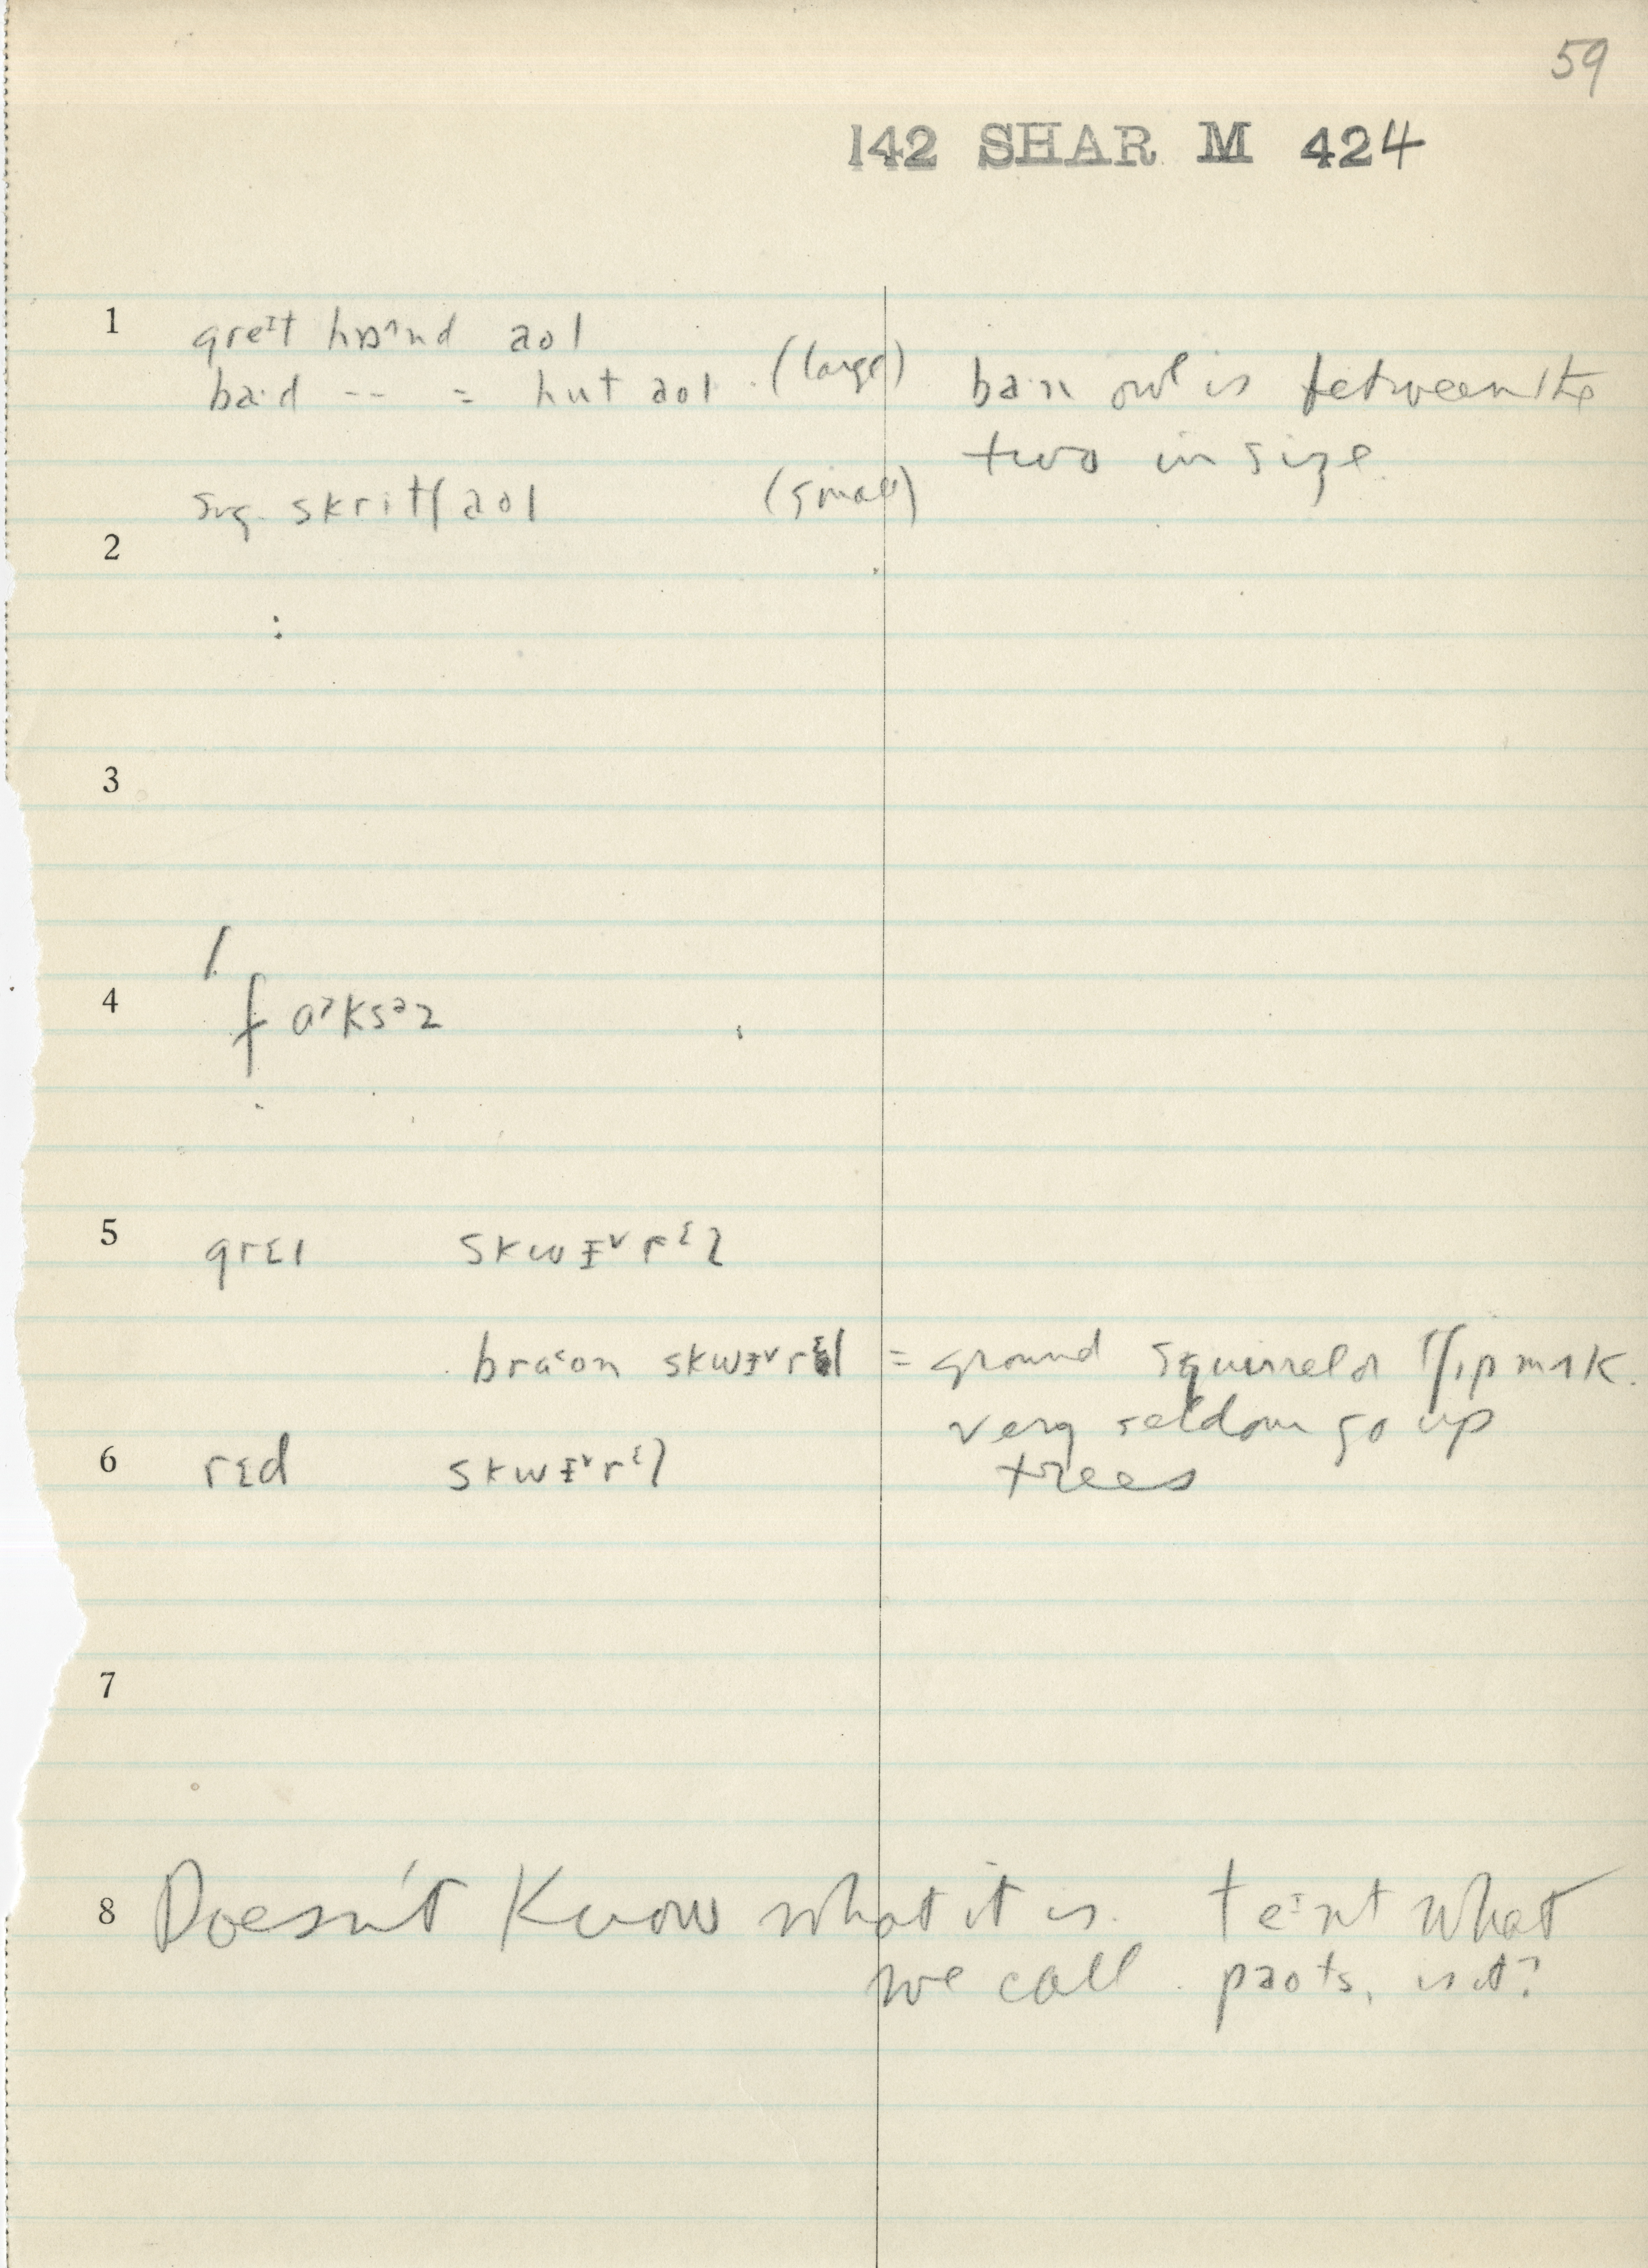 59
142 SHAR M 424
1 greɪt hɒnd aol
baːd -- = hut aol (large)
barn owl is between the
two in size
svg. skritʃ aol (small)
2
3
4 fɑᵊksᵊz
5 grɛɪ skwɪ̵ᵛrᵋl
brɑᵋon skwɪ̵ᵛrᵋl = ground squirrel or tʃɪpmʌk.
very seldom go up
6 rɛd skwɪ̵ᵛrᵋl
trees
7
8 Doesn't know what it is. teɪnt what
we call paots, is it?